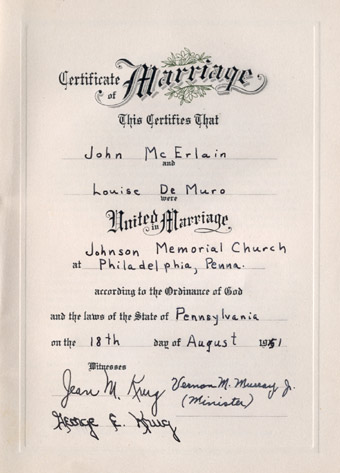 Certificate of Marriage
This Certifies That
John McErlain
and
Louise De Muro
were
United in Marriage
Johnson Memorial Church
at Philadelphia, Penna.
according to the Ordinance of God
and the laws of the State of Pennsylvania
on the 18th day of August 1951
Witnesses
Jean M. Krug Vernon M. Murray Jr.
(Minister)
George E. Krug